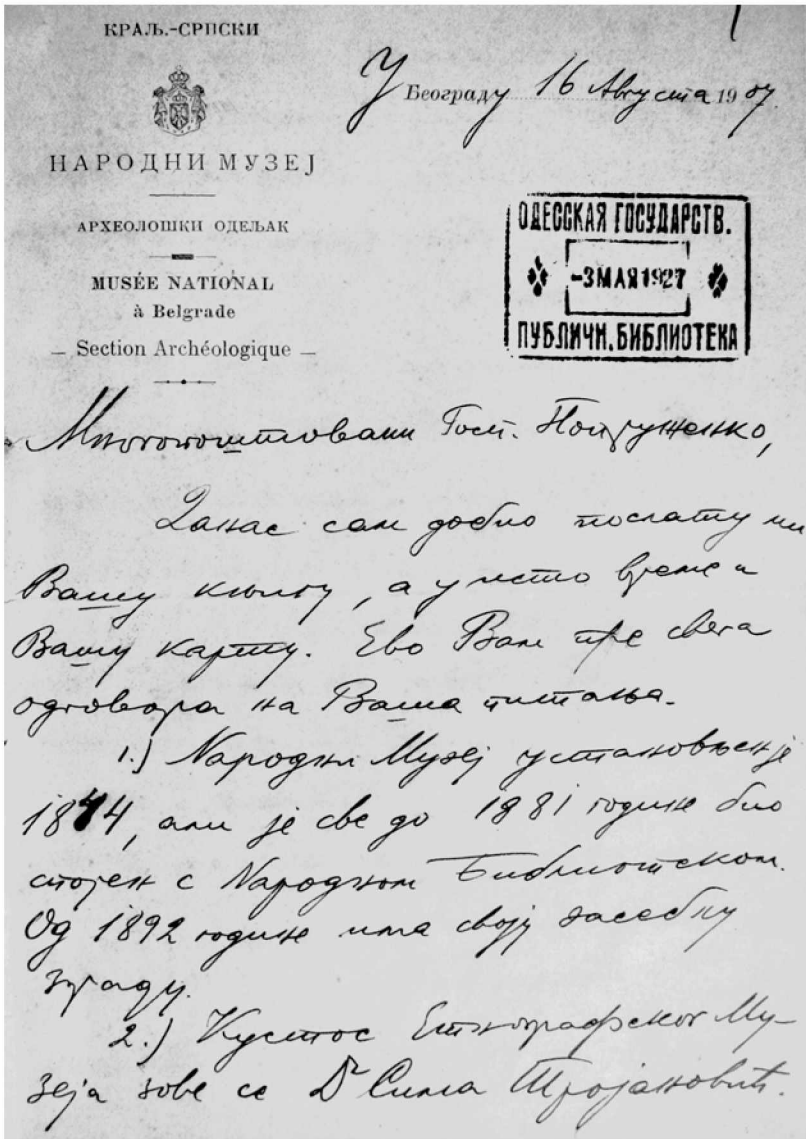 КРАЉ.-СРПСКИ
НАРОДНИ МУЗЕЈ
АРХЕОЛОШКИ ОДЕЉАК
MUSÉE NATIONAL
à Belgrade
— Section Archéologique —
У Београду 16 Августа 1907
ОДЕССКАЯ ГОСУДАРСТВ.
-3 МАЯ 1927
ПУБЛИЧН. БИБЛИОТЕКА
Многопоштовани Госп. Попруженко,
Данас сам добио послату ми
Вашу књигу, а у исто време и
Вашу карту. Ево Вам пре свега
одговора на Ваша питања.
1.) Народни Музеј установљен је
1844, али је све до 1881 године био
спојен с Народном Библиотеком.
Од 1892 године има своју засебну
зграду.
2.) Кустос Етнографског Му-
зеја зове се Dr Сима Тројановић.